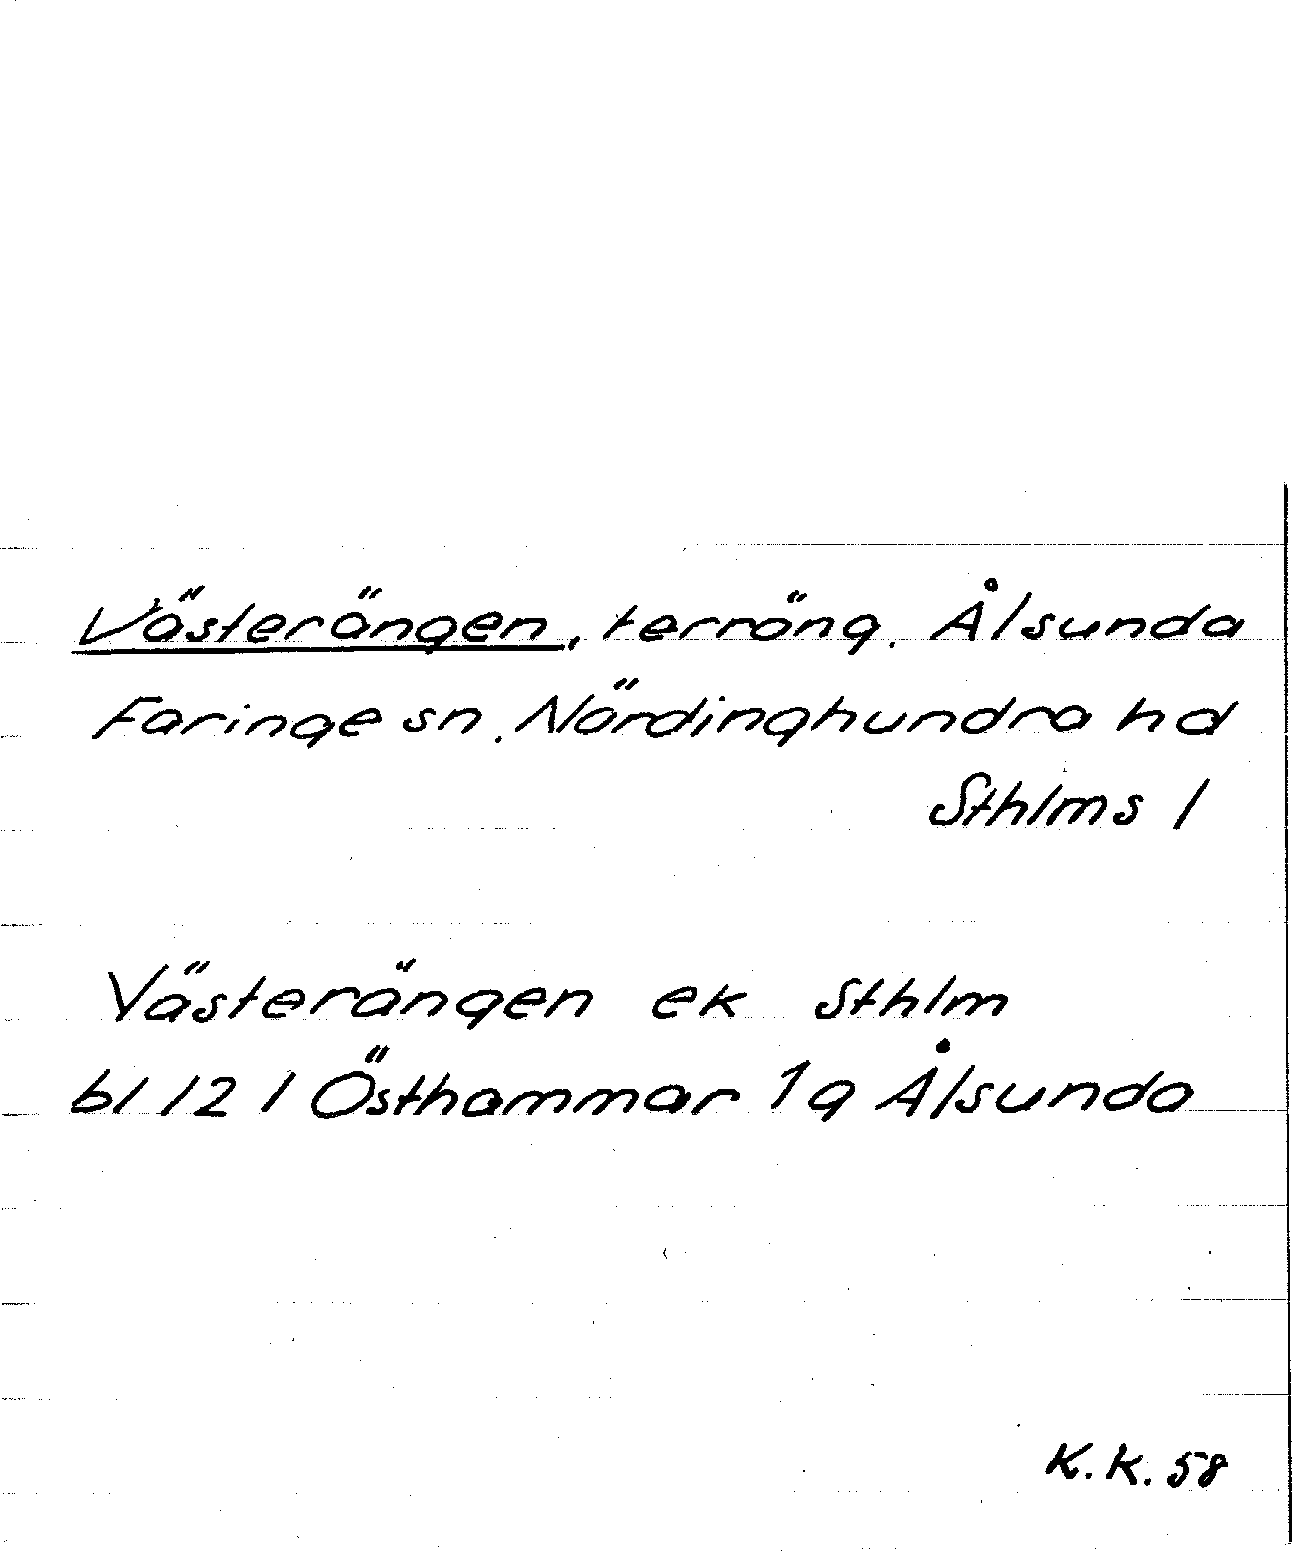 Västerängen, terräng, Ålsunda
Faringe sn, Närdinghundra hd
Sthlms l
Västerängen ek Sthlm
bl 12 I Östhammar 1g Ålsunda
K.K. 58